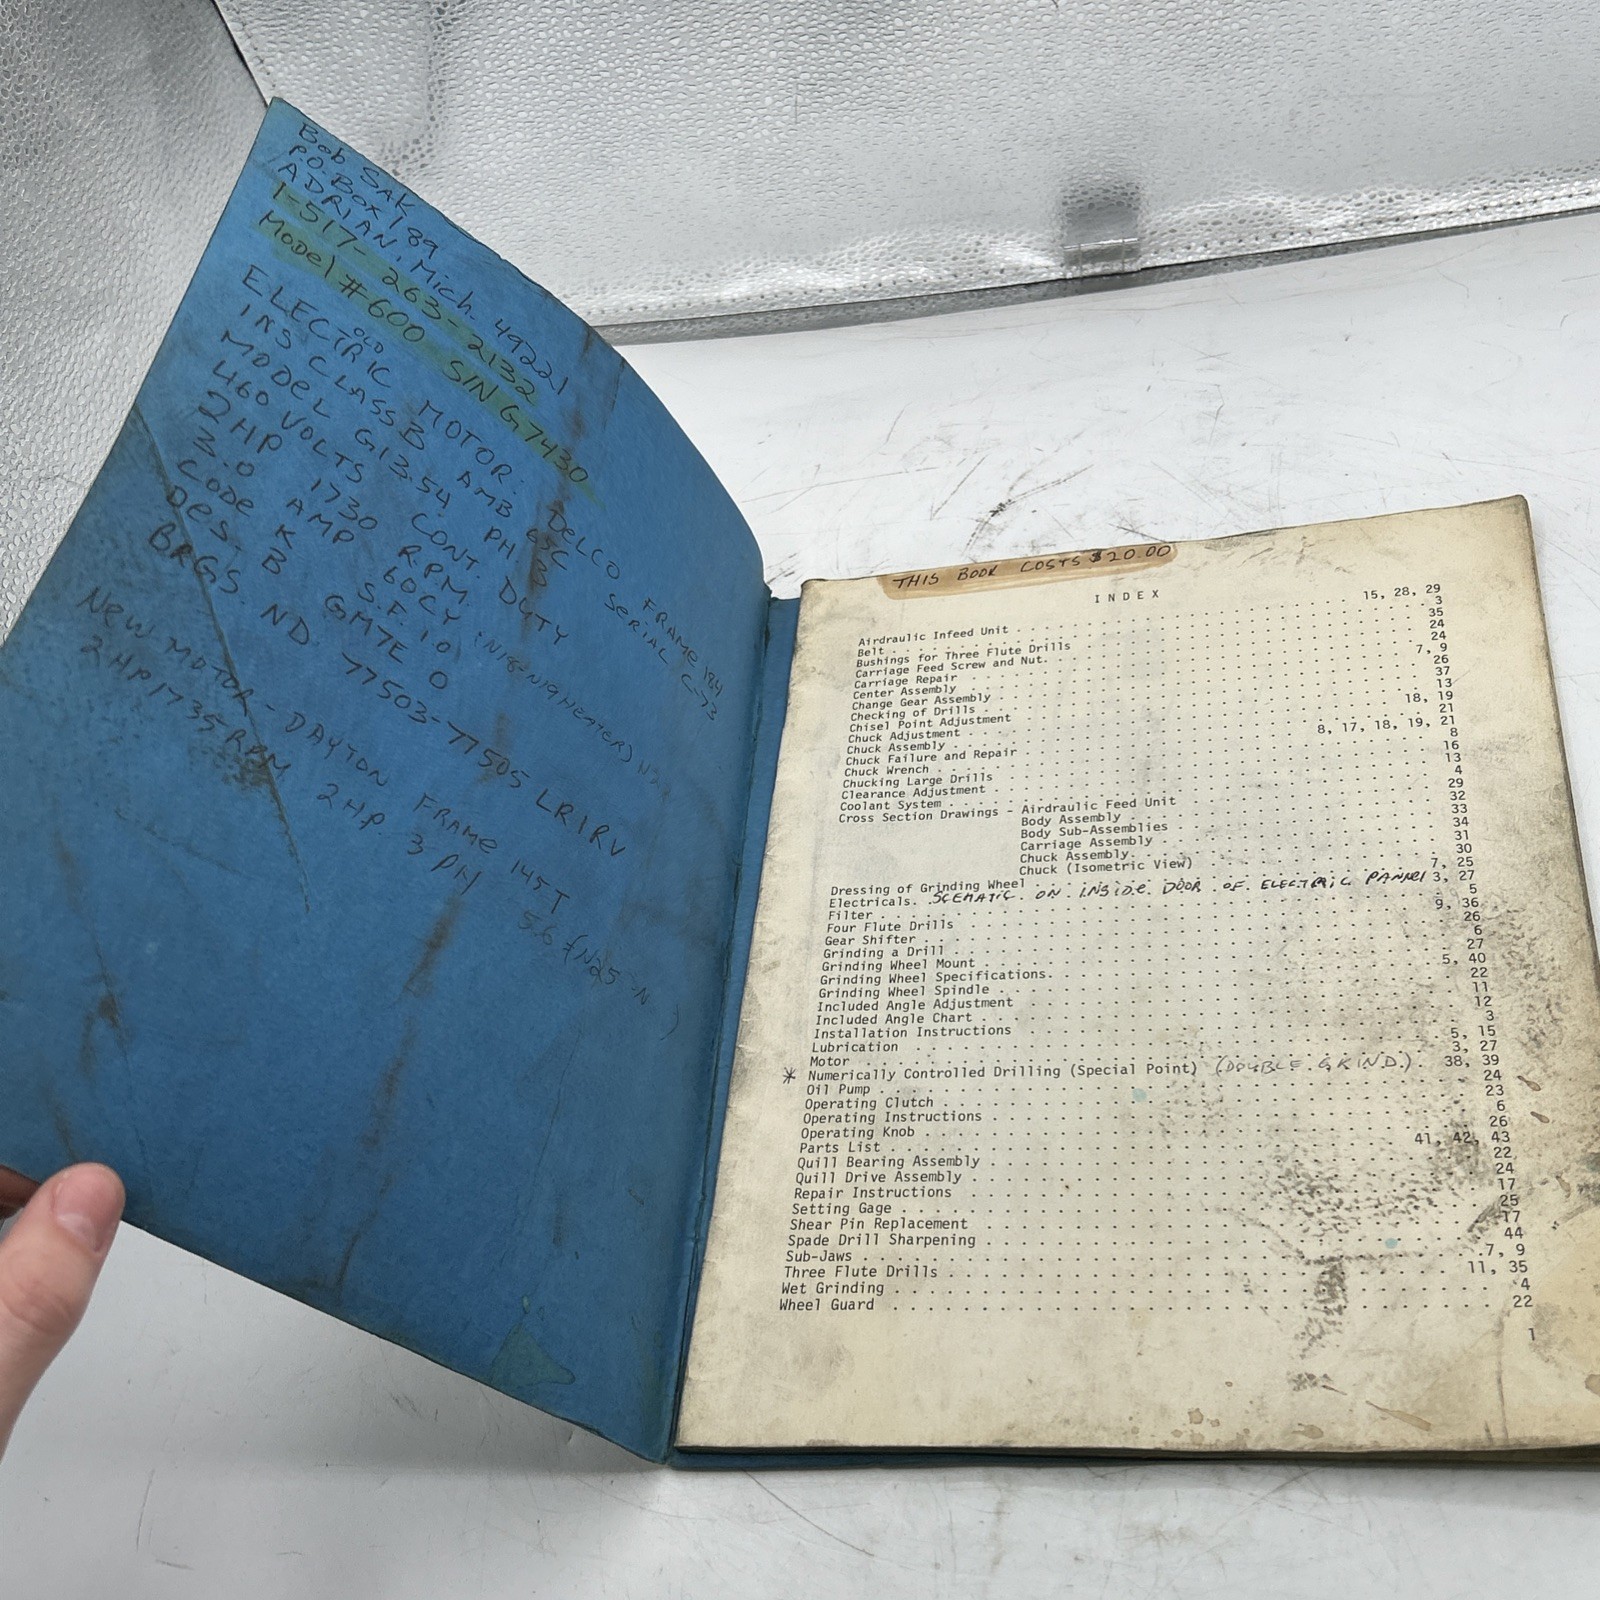 Bob SAK
P.O. Box 189
ADRIAN, Mich. 49221
1-517-263-2132
Model #600 S/N G7430
OLD
ELECTRIC MOTOR: DELCO FRAME 184
INS CLASS B AMB 65C SERIAL C-73
MODEL G1354 PH. 3
460 VOLTS CONT. DUTY
2HP 1730 R.P.M.
3.0 AMP 60CY
CODE K S.F. 1.0
DES. B GM7E O
BRGS. ND 77503-77505 LRIRV
NEW MOTOR - DAYTON FRAME 145T
2HP 1735 RPM 2HP. 3 PH
THIS BOOK COSTS $20.00
INDEX
Airdraulic Infeed Unit . . . 15, 28, 29
Belt . . . 3
Bushings for Three Flute Drills . . . 35
Carriage Feed Screw and Nut. . . . 24
Carriage Repair . . . 24
Center Assembly . . . 7, 9
Change Gear Assembly . . . 26
Checking of Drills . . . 37
Chisel Point Adjustment . . . 13
Chuck Adjustment . . . 18, 19
Chuck Assembly . . . 21
Chuck Failure and Repair . . . 8, 17, 18, 19, 21
Chuck Wrench . . . 8
Chucking Large Drills . . . 16
Clearance Adjustment . . . 13
Coolant System . . . 4
Cross Section Drawings - Airdraulic Feed Unit . . . 29
Body Assembly . . . 32
Body Sub-Assemblies . . . 33
Carriage Assembly . . . 34
Chuck Assembly. . . . 31
Chuck (Isometric View) . . . 30
Dressing of Grinding Wheel . . . 7, 25
Electricals. SCEMATIC ON INSIDE DOOR OF ELECTRIC PANNEL 3, 27
Filter . . . 5
Four Flute Drills . . . 9, 36
Gear Shifter . . . 26
Grinding a Drill . . . 6
Grinding Wheel Mount . . . 27
Grinding Wheel Specifications. . . . 5, 40
Grinding Wheel Spindle . . . 22
Included Angle Adjustment . . . 11
Included Angle Chart . . . 12
Installation Instructions . . . 3
Lubrication . . . 5, 15
Motor . . . 3, 27
* Numerically Controlled Drilling (Special Point) (DOUBLE GRIND) . 38, 39
Oil Pump . . . 24
Operating Clutch . . . 23
Operating Instructions . . . 6
Operating Knob . . . 26
Parts List . . . 41, 42, 43
Quill Bearing Assembly . . . 22
Quill Drive Assembly . . . 24
Repair Instructions . . . 17
Setting Gage . . . 25
Shear Pin Replacement . . . 17
Spade Drill Sharpening . . . 44
Sub-Jaws . . . 7, 9
Three Flute Drills . . . 11, 35
Wet Grinding . . . 4
Wheel Guard . . . 22
1